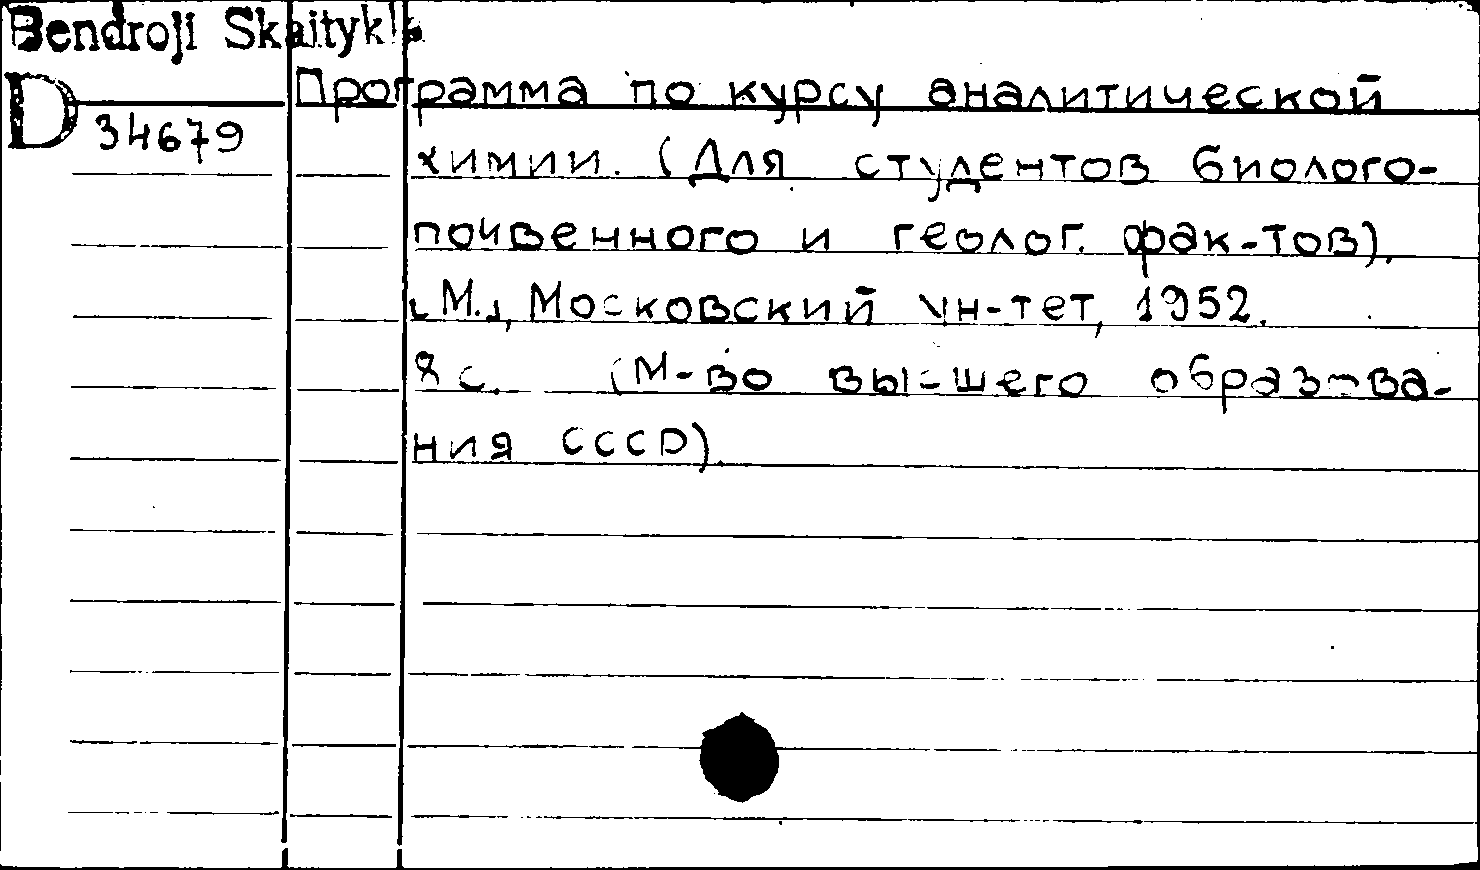 Bendroji Skaitykla
Программа по курсу аналитической
D 34679
химии. (Для студентов биолого-
почвенного и геолог. фак-тов).
[М.], Московский ун-тет, 1952.
8 с. (М-во высшего образова-
ния СССР).